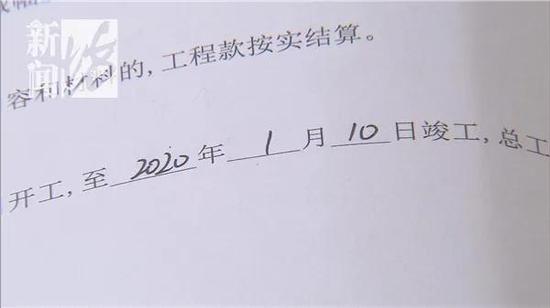 新闻
容和材料的,工程款按实结算。
开工,至 2020 年 1 月 10 日竣工,总工